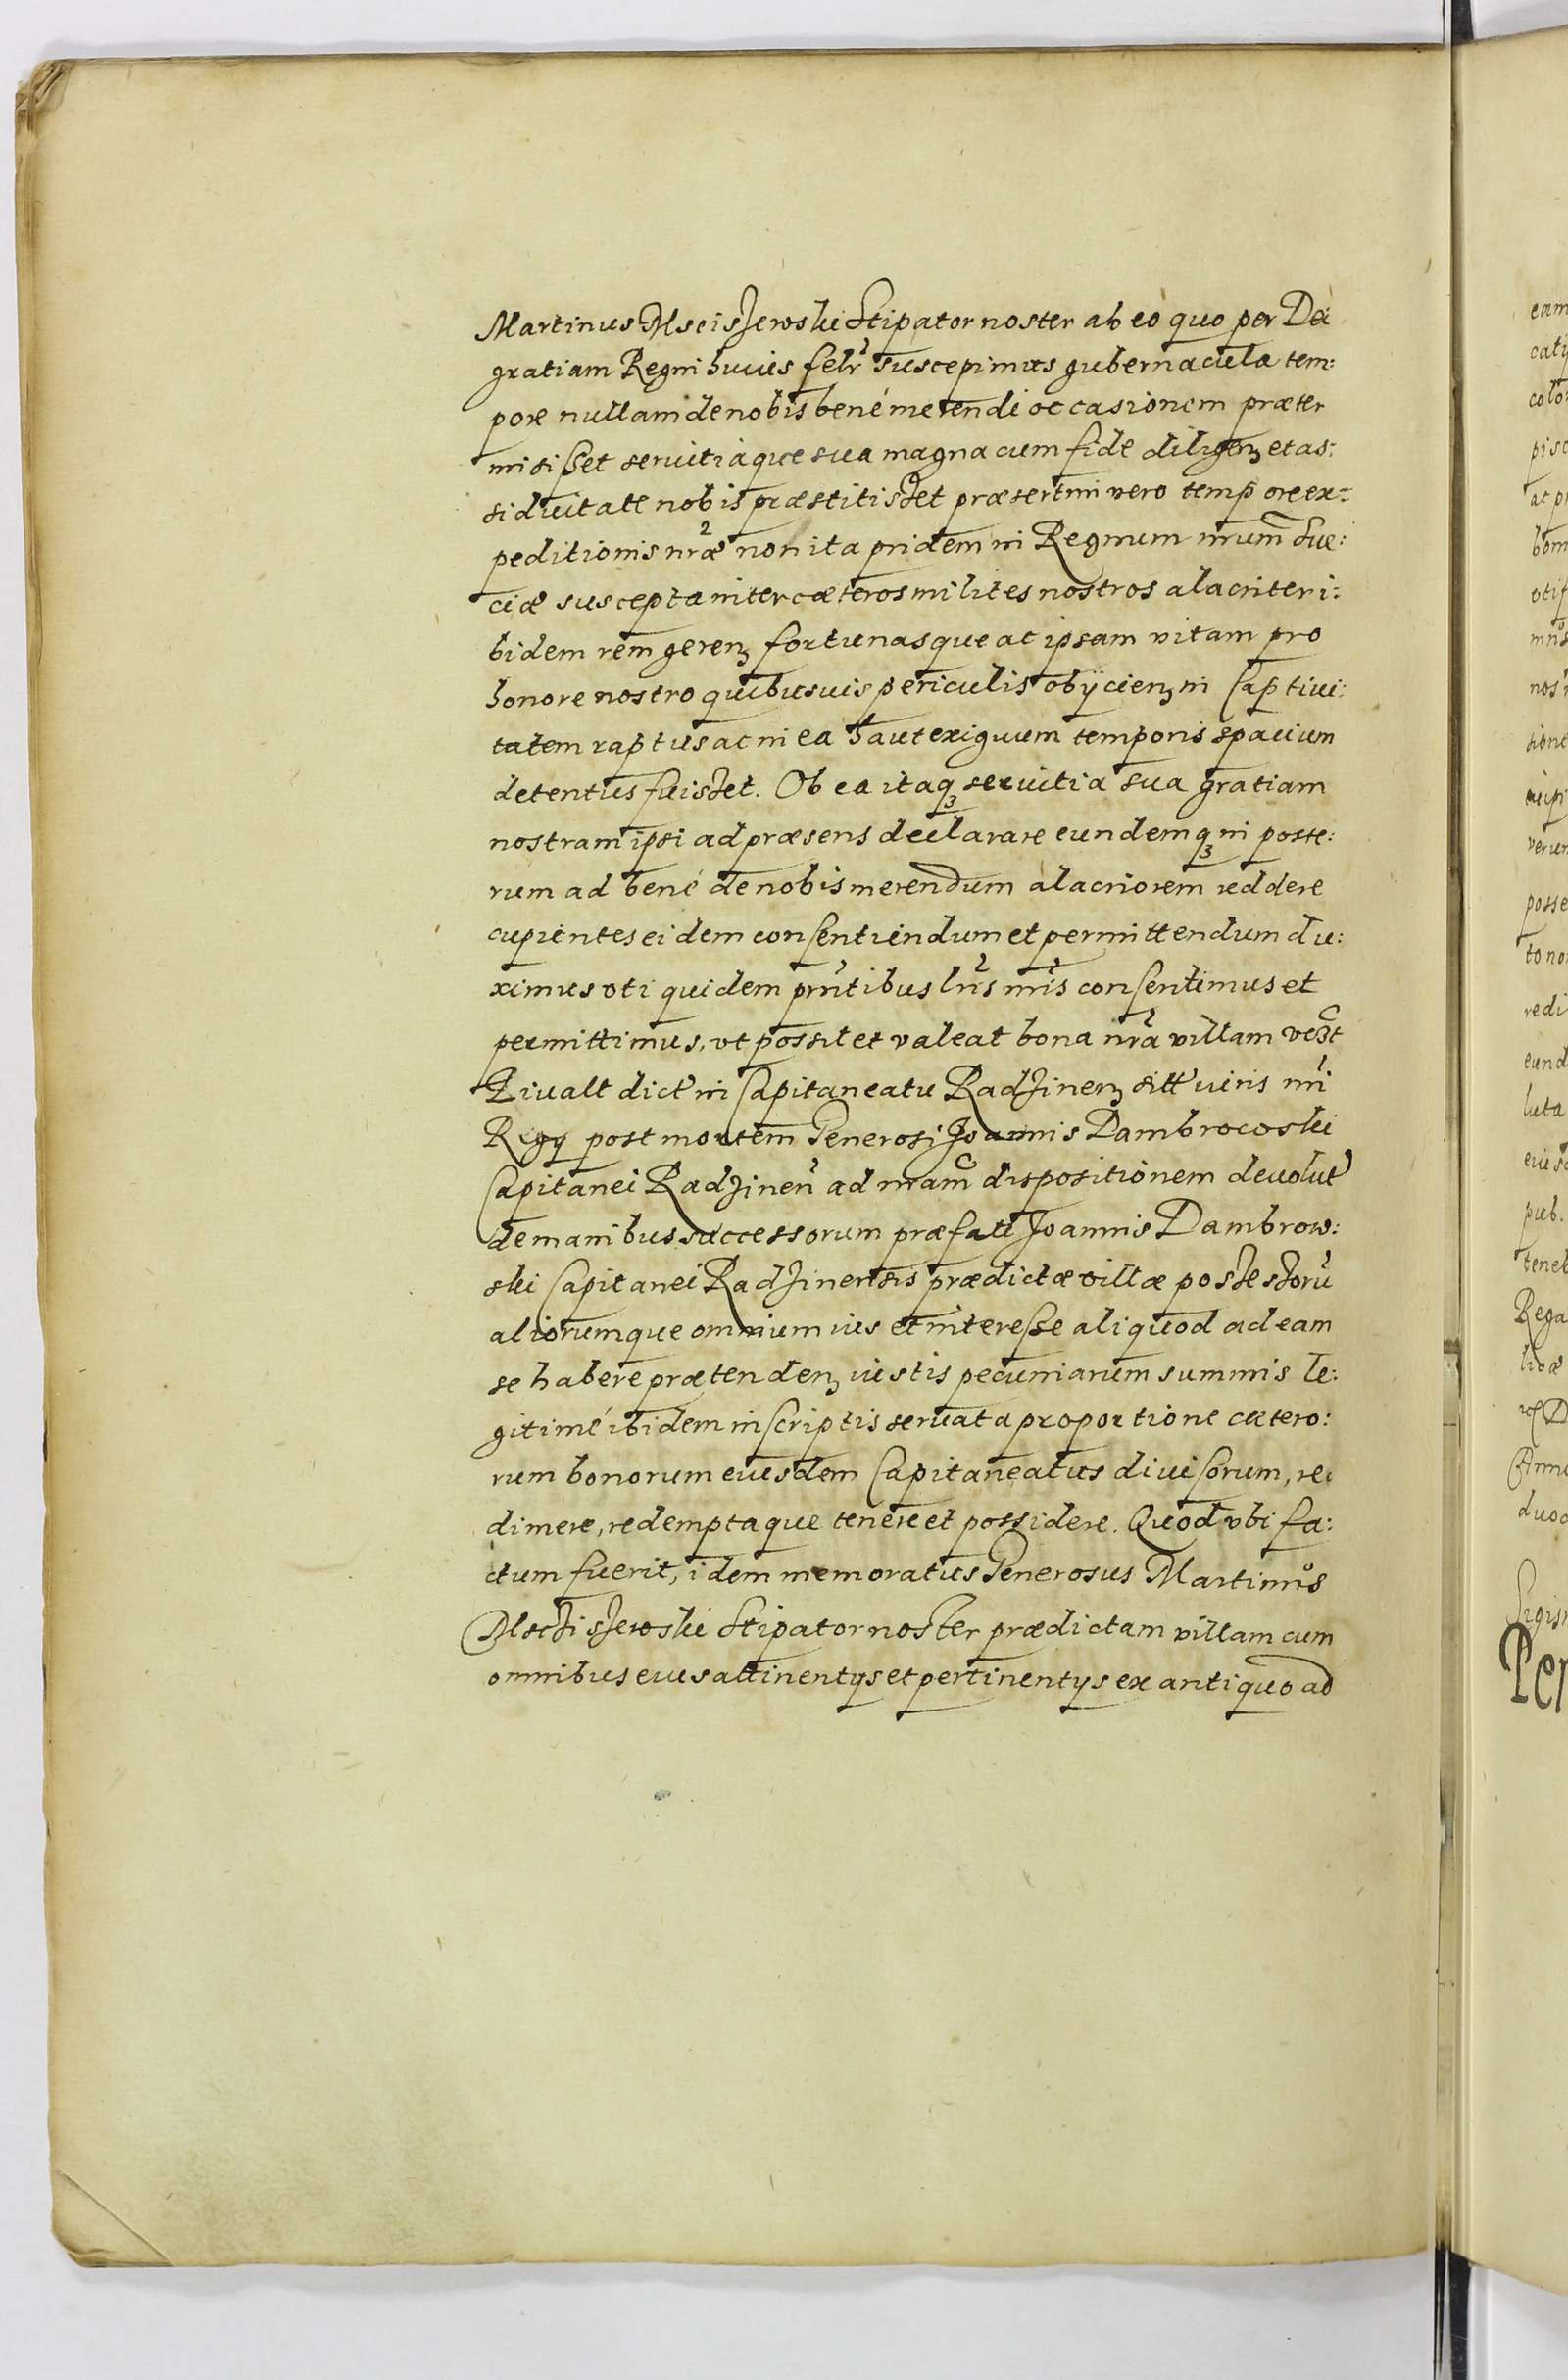 Martinus Msciszewski Stipator noster ab eo quo per Dei
gratiam Regni huius felr suscepimus gubernacula tem:
pore nullam de nobis bené merendi occasionem præter
misisset seruitiáque sua magna cum fide diligenz et as:
siduitate nobis præstitisset præsertim vero tempore ex=
peditionis nræ non ita pridem in Regnum nrum Sue:
ciæ suscepta inter cæteros milites nostros alacriter i:
bidem rem gerenz fortunasque ac ipsam vitam pro
honore nostro quibusuis periculis obÿcienz in Captiui:
tatem raptus ac in ea haut exiguum temporis spacium
detentus fuisset. Ob ea itaqz seruitia sua gratiam
nostram ipsi ad præsens declarare eundemqz in poste:
rum ad bené de nobis merendum alacriorem reddere
cupientes eidem consentiendum et permittendum du:
ximus vti quidem prntibus lris nris consentimus et
permittimus, vt possit et valeat bona nra villam
dict in Capitaneatu Radzinenz sitt iuris nri
Regÿ post mortem Generosi Joannis Dambrowski
Capitanei Radzinen ad nram dispositionem deuolut
de manibus successorum præfati Joannis Dambrow:
ski Capitanei Radzinensis prædictæ villæ possessorū
aliorumque omnium ius et interesse aliquod ad eam
se habere prætendenz iustis pecuniarum summis le:
gitimé ibidem inscriptis seruata proportione cætero:
rum bonorum eiusdem Capitaneatus diuisorum, re
dimere, redemptaque tenere et possidere. Quod vbi fa:
ctum fuerit, idem memoratus Generosus Martinus
Msciszewski Stipator noster prædictam villam cum
omnibus eius attinentÿs et pertinentÿs ex antiquo ad